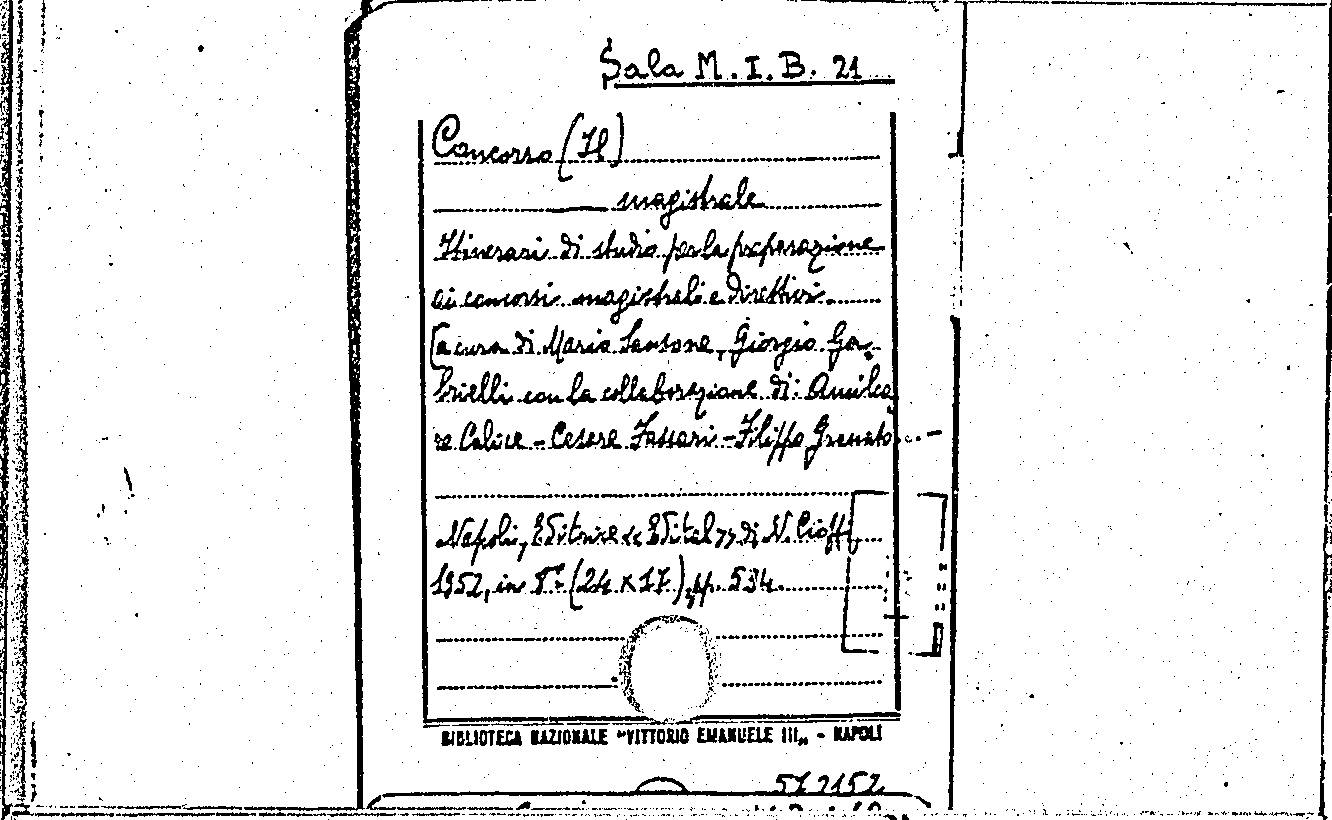 Sala M. I. B. 21
Concorso (Il)
magistrale
Itinerari di studio per la preparazione
ai concorsi magistrali e direttivi.
(a cura di Mario Santone, Giorgio Ga-
brielli con la collaborazione di: Amilca
re Calice - Cesare Fassari - Filippo Granato
Napoli, Editrice «Edital» di N. Cioffi,
1952, in 8° (24 x 17), pp. 534.
BIBLIOTECA NAZIONALE "VITTORIO EMANUELE III„ - NAPOLI